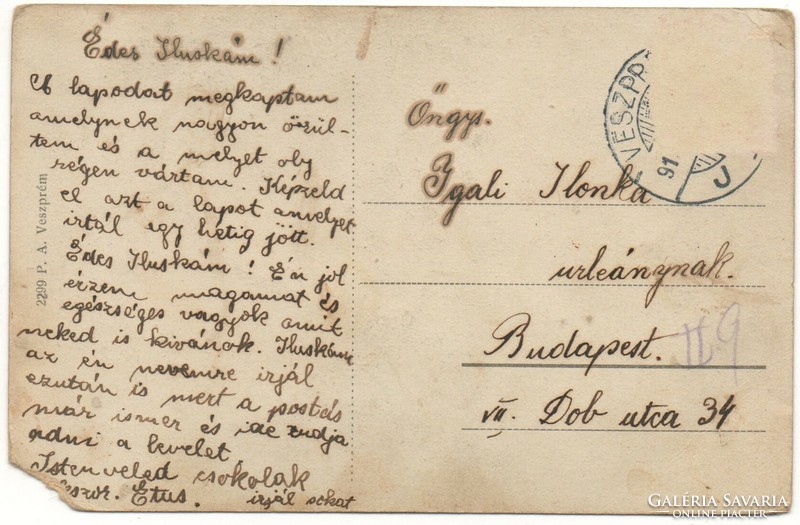 Édes Iluskám!
A lapodat megkaptam
amelynek nagyon örül-
tem és a melyet oly
régen vártam. Képzeld
el azt a lapot amelyet
irtál egy hetig jött.
Édes Iluskám! Én jól
érzem magamat és
egészséges vagyok amit
neked is kivánok. Iluskám
az én nevemre irjál
ezután is mert a postás
már ismer és ide tudja
adni a levelet
Istenveled csokolak
Etus. irjál sokat
2299 P. A. Veszprém
Öngys.
Igali Ilonka
urleánynak.
Budapest. II 9
VII. Dob utca 34
VESZPR
91
J
GALÉRIA SAVARIA
ONLINE PIACTÉR